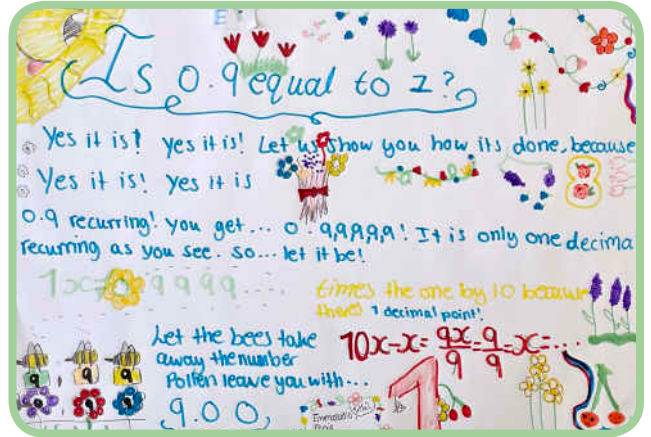 Is 0.9 equal to 1?
Yes it is! Yes it is! Let us show you how its done, because
Yes it is! Yes it is
0.9 recurring! You get... 0.9,9,9,9,9! It is only one decima
recurring as you see. So... let it be!
1x=0.9999....
times the one by 10 because
there's 1 decimal point!
Let the bees take
away the number
Pollen leave you with...
10x-x=9x/9=9/9=x=...
9 9 9
9 9 9
9.00
1